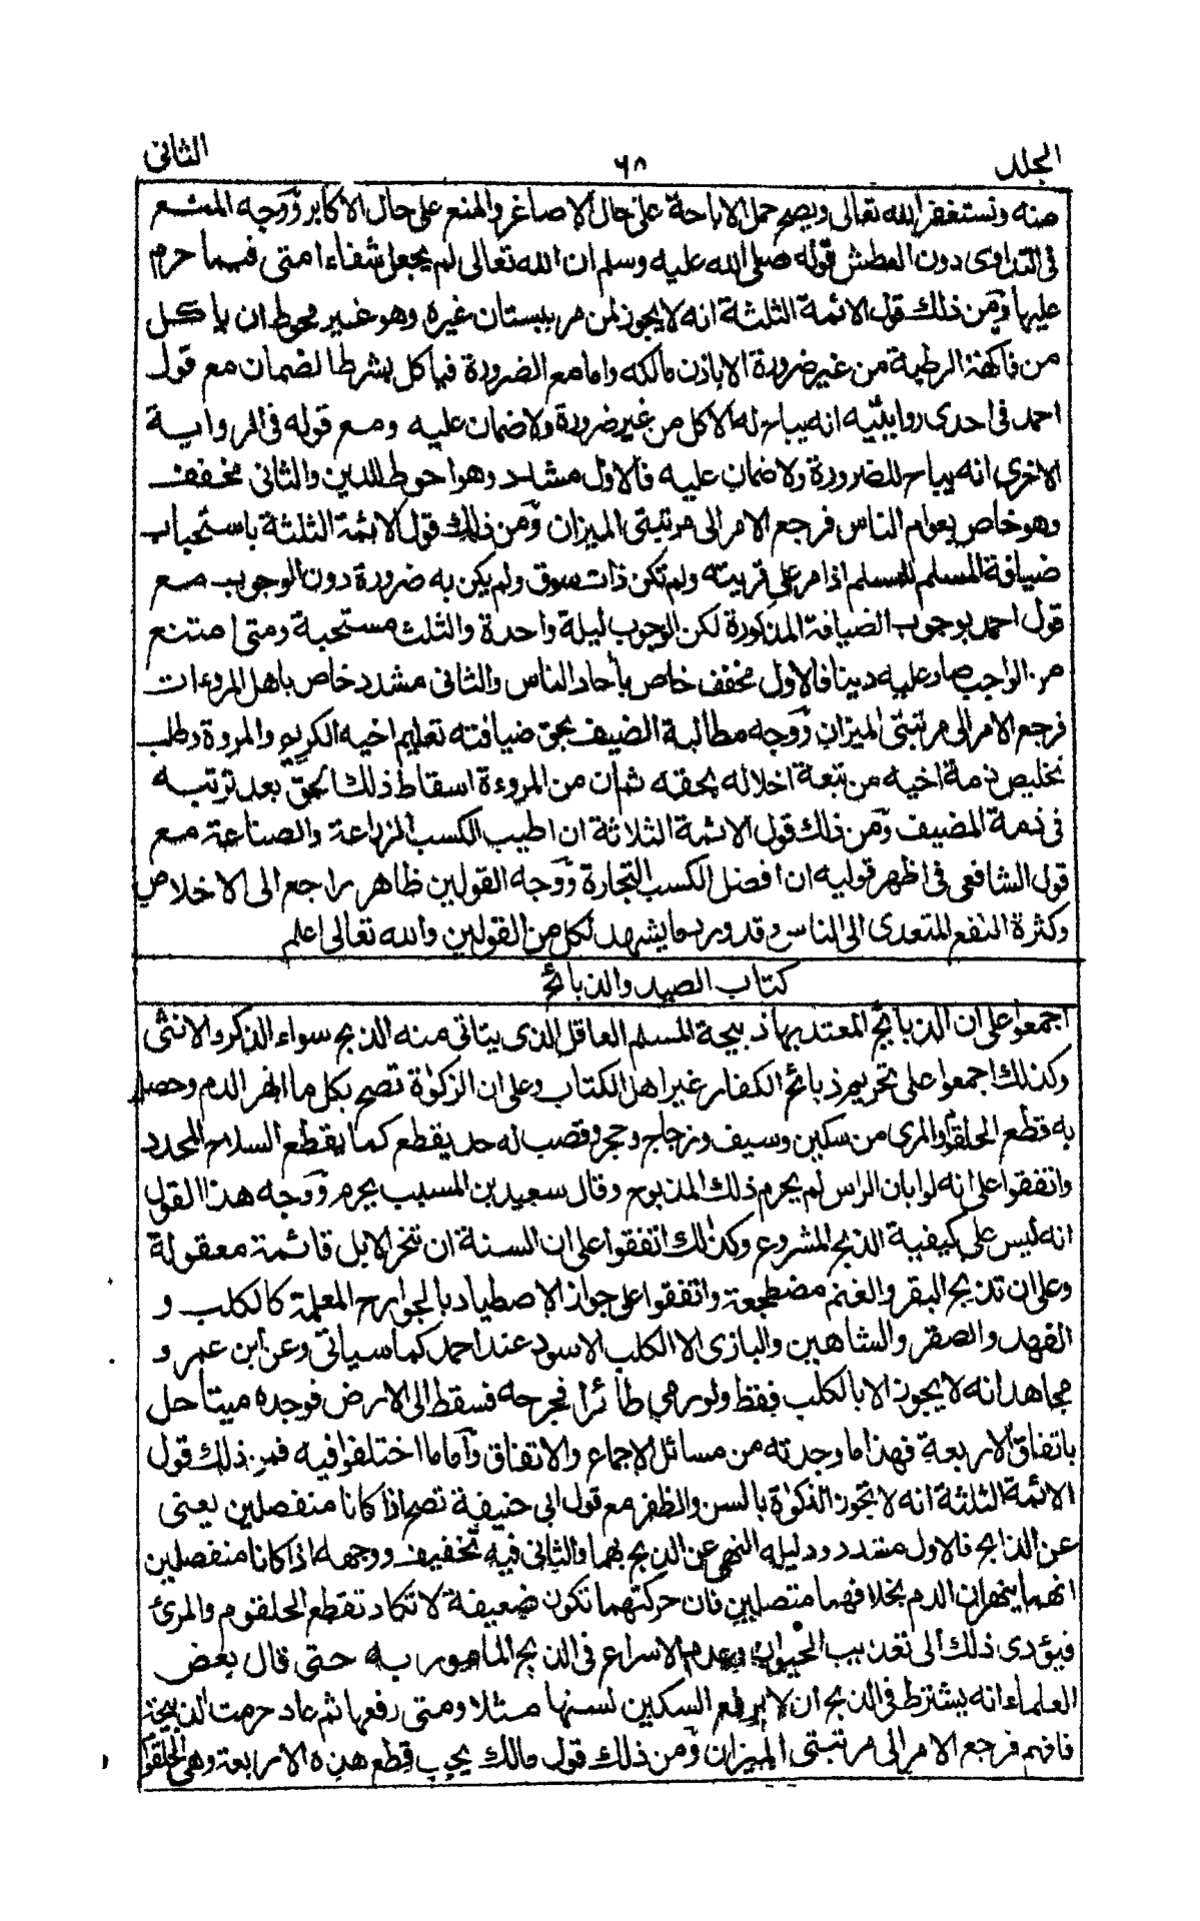 المجلد ٦٨ الثانى
منه ونستغفر الله تعالى ويصح حمل الاباحة على حال الاصاغر والمنع على حال الاكابر ووجه المنع
فى التداوى دون العطش قوله صلى الله عليه وسلم ان الله تعالى لم يجعل شفاء امتى فيما حرم
عليها ومن ذلك قول الائمة الثلثة انه لا يجوز لمن مر ببستان غيره وهو غير محوط ان ياكل
من فاكهته الرطبة من غير ضرورة الا باذن مالكه واما مع الضرورة فياكل بشرط الضمان مع قول
احمد فى احدى روايتيه انه يباح له الاكل من غير ضرورة ولا ضمان عليه ومع قوله فى الرواية
الاخرى انه يباح للضرورة ولا ضمان عليه فالاول مشدد وهو احوط للدين والثانى مخفف
وهو خاص بعوام الناس فرجع الامر الى مرتبتى الميزان ومن ذلك قول الائمة الثلثة باستحباب
ضيافة المسلم للمسلم اذا مر على قريته ولم تكن ذات سوق ولم يكن به ضرورة دون الوجوب مع
قول احمد بوجوب الضيافة المذكورة لكن الوجوب ليلة واحدة والثلث مستحبة ومتى امتنع
من الواجب صار عليه دينا فالاول مخفف خاص بأحاد الناس والثانى مشدد خاص باهل المروءات
فرجع الامر الى مرتبتى الميزان ووجه مطالبة الضيف بحق ضيافته تعليم اخيه الكريم والمروة وطلب
تخليص ذمة اخيه من تبعة اخلاله بحقه ثم ان من المروءة اسقاط ذلك الحق بعد ترتبه
فى ذمة المضيف ومن ذلك قول الائمة الثلاثة ان اطيب الكسب الزراعة والصناعة مع
قول الشافعى فى اظهر قوليه ان افضل الكسب التجارة ووجه القولين ظاهر راجع الى الاخلاص
وكثرة النفع المتعدى الى الناس وقد ورد ما يشهد لكل من القولين والله تعالى اعلم
كتاب الصيد والذبائح
اجمعوا على ان الذبائح المعتد بها ذبيحة المسلم العاقل الذى يتاتى منه الذبح سواء الذكر والانثى
وكذلك اجمعوا على تحريم ذبائح الكفار غير اهل الكتاب وعلى ان الزكوٰة تصح بكل ما انهر الدم وحصل
به قطع الحلقوم والمرى من سكين وسيف وزجاج وحجر وقصب له حد يقطع كما يقطع السلاح المحدد
واتفقوا على انه لو ابان الراس لم يحرم ذلك المذبوح وقال سعيد بن المسيب يحرم ووجه هذا القول
انه ليس على كيفية الذبح المشروع وكذلك اتفقوا على ان السنة ان تنحر الابل قائمة معقولة
وعلى ان تذبح البقر والغنم مضطجعة واتفقوا على جواز الاصطياد بالجوارح المعلمة كالكلب و
الفهد والصقر والشاهين والبازى الا الكلب الاسود عند احمد كما سياتى وعن ابن عمر و
مجاهد انه لا يجوز الا بالكلب فقط ولو رمى طائرا فجرحه فسقط الى الارض فوجده ميتا حل
باتفاق الاربعة فهذا ما وجدته من مسائل الاجماع والاتفاق وأما ما اختلفوا فيه فمن ذلك قول
الائمة الثلثة انه لا تجوز الذكوٰة بالسن والظفر مع قول ابى حنيفة تصح اذا كانا منفصلين يعنى
عن الذابح فالاول مشدد ودليله النهى عن الذبح بهما والثانى فيه تخفيف ووجهه اذا كانا منفصلين
انهما ينهران الدم بخلافهما متصلين فان حركتهما تكون ضعيفة لا تكاد تقطع الحلقوم والمرئ
فيؤدى ذلك الى تعذيب الحيوان وعدم الاسراع فى الذبح المامور به حتى قال بعض
العلماء انه يشترط فى الذبح ان لا يرفع السكين لسنها مثلا ومتى رفعها ثم عاد حرمت الذبيحة
فافهم فرجع الامر الى مرتبتى الميزان ومن ذلك قول مالك يجب قطع هذه الاربعة وهى الحلقوم